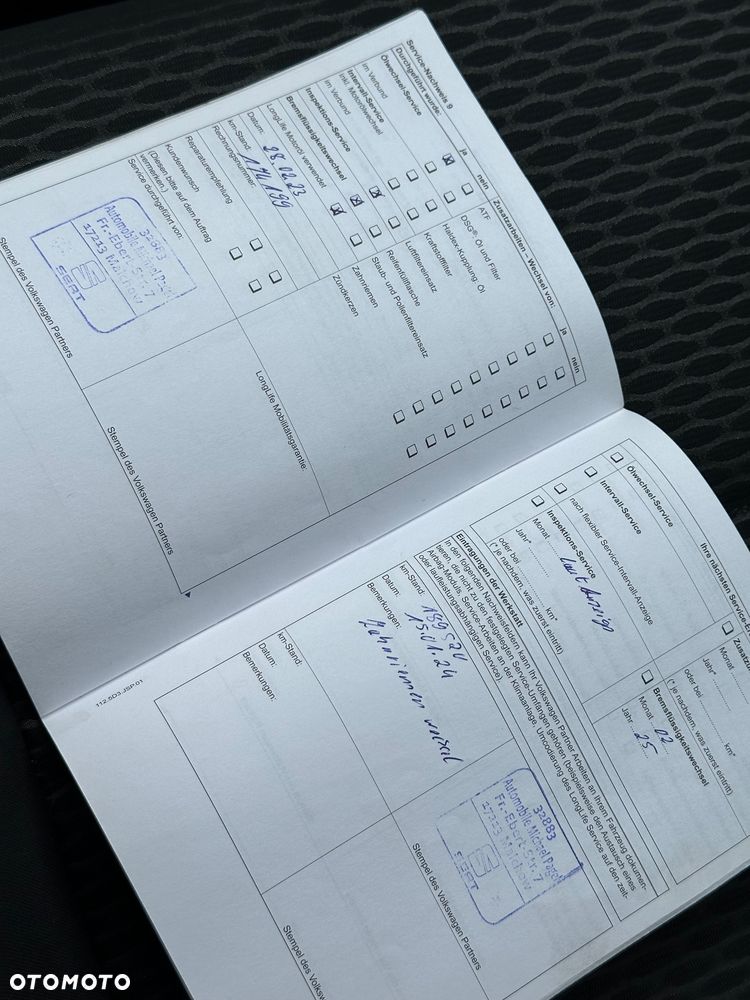 Service-Nachweis 9
Durchgeführt wurde:
ja
nein
Ölwechsel-Service
im Verbund
Intervall-Service
inkl. Motorölwechsel
im Verbund
Inspektions-Service
Bremsflüssigkeitswechsel
LongLife Motoröl verwendet
Datum: 28.02.23
km-Stand: 174 199
Rechnungsnummer:
Reparaturempfehlung
Kundenwunsch
(Diesen bitte auf dem Auftrag
vermerken.)
Service durchgeführt von:
32883
Automobile Michael Pagel
Fr.-Ebert-Str. 7
17213 Malchow
SEAT
Stempel des Volkswagen Partners
Zusatzarbeiten – Wechsel von:
ja
nein
ATF
DSG®-Öl und Filter
Haldex-Kupplung: Öl
Kraftstofffilter
Luftfiltereinsatz
Reifenfüllflasche
Staub- und Pollenfiltereinsatz
Zahnriemen
Zündkerzen
LongLife Mobilitätsgarantie:
Stempel des Volkswagen Partners
Ihre nächsten Service-E
Ölwechsel-Service
Intervall-Service
nach flexibler Service-Intervall-Anzeige
Inspektions-Service
Monat
Jahr*
laut Anzeige
oder bei
km*
(* je nachdem, was zuerst eintritt)
Zusatz
Monat
Jahr*
oder bei
km*
(* je nachdem, was zuerst eintritt)
Bremsflüssigkeitswechsel
Monat 02
Jahr 25
Eintragungen der Werkstatt
In den folgenden Nachweisfeldern kann Ihr Volkswagen Partner Arbeiten an Ihrem Fahrzeug dokumen-
tieren, die nicht zu den festgelegten Service-Umfängen gehören (beispielsweise den Austausch eines
Airbag-Moduls, Service-Arbeiten an der Klimaanlage, Umcodierung des LongLife Service auf den zeit-
oder laufleistungsabhängigen Service).
km-Stand: 189 520
Datum: 15.01.24
Bemerkungen:
Zahnriemen wechsel
32883
Automobile Michael Pagel
Fr.-Ebert-Str. 7
17213 Malchow
SEAT
Stempel des Volkswagen Partners
km-Stand:
Datum:
Bemerkungen:
Stempel des Volkswagen Partners
112.5D3.JSP.01
OTOMOTO